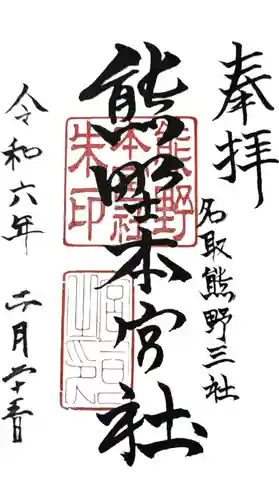 奉拝
名取熊野三社
熊野本宮社
熊野本宮社朱印
令和六年 二月二十五日